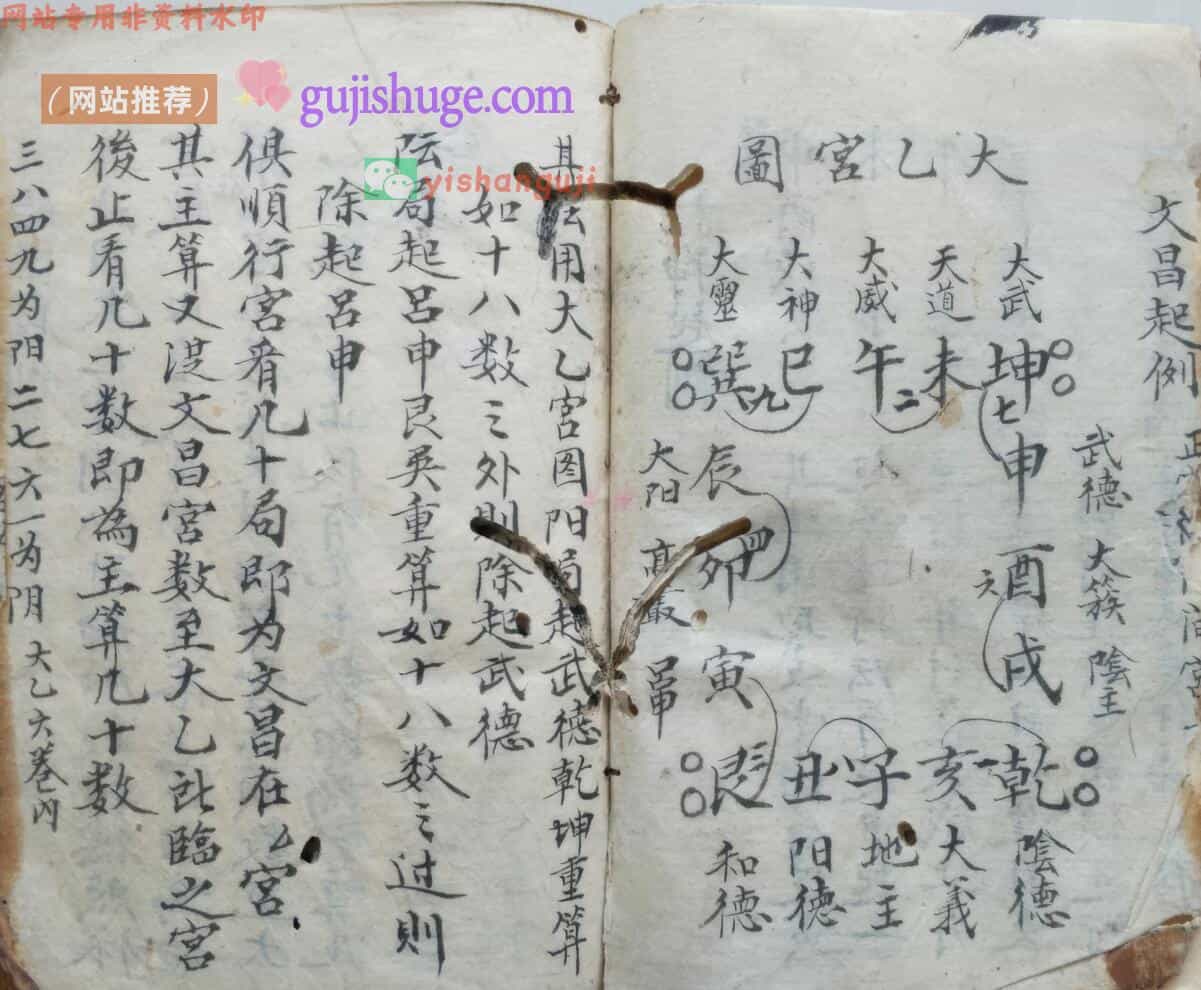 网站专用非资料水印
（网站推荐）
gujishuge.com
yishanguji
文昌起例
大乙宮圖
大武
天道
大威
大神
大靈
坤
未
午
巳
巽
七
二
九
申
酉
戌
六
武德
大簇
陰主
辰
卯
寅
四
大阳
高叢
呂申
乾
亥
子
丑
艮
一
八
三
陰德
大義
地主
阳德
和德
其法用大乙宮图阳局起武德乾坤重算
如十八数之外則除起武德
阮局起呂申艮巽重算如十八数之过則
除起呂申
俱順行宮看几十局即为文昌在厶宮
其主算又從文昌宮数至大乙所臨之宮
後止看几十数即為主算几十数
三八四九为阳二七六一为阴 大乙六卷内